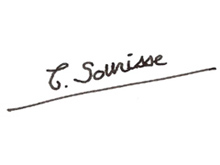 C. Sourisse